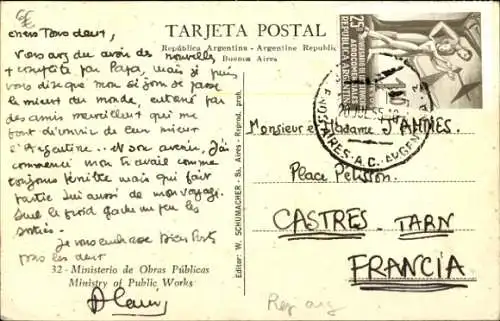 chers Tous deux,
Vous avez du avoir des nouvelles
complète par Papa, mais je puis
vous dire que mon séjour se passe
le mieux du monde, entouré par
des amis merveilleux qui me
font découvrir de leur mieux
l'Argentine
commencé mon travail comme
toujours mais qui fait
partie lui aussi de mon voyage.
Seul le froid gâche un peu les
sorties.
Je vous embrasse bien forts
tous les deux
Alain
TARJETA POSTAL
República Argentina - Argentine Republic
Buenos Aires
32 - Ministerio de Obras Públicas
Ministry of Public Works
Editor: W. SCHUMACHER - Bs. Aires - Reprod. proh.
REPUBLICA ARGENTINA
BUENOS AIRES - A.C. ARGENTINA
Monsieur et Madame
Place Pelisson.
CASTRES - TARN
FRANCIA